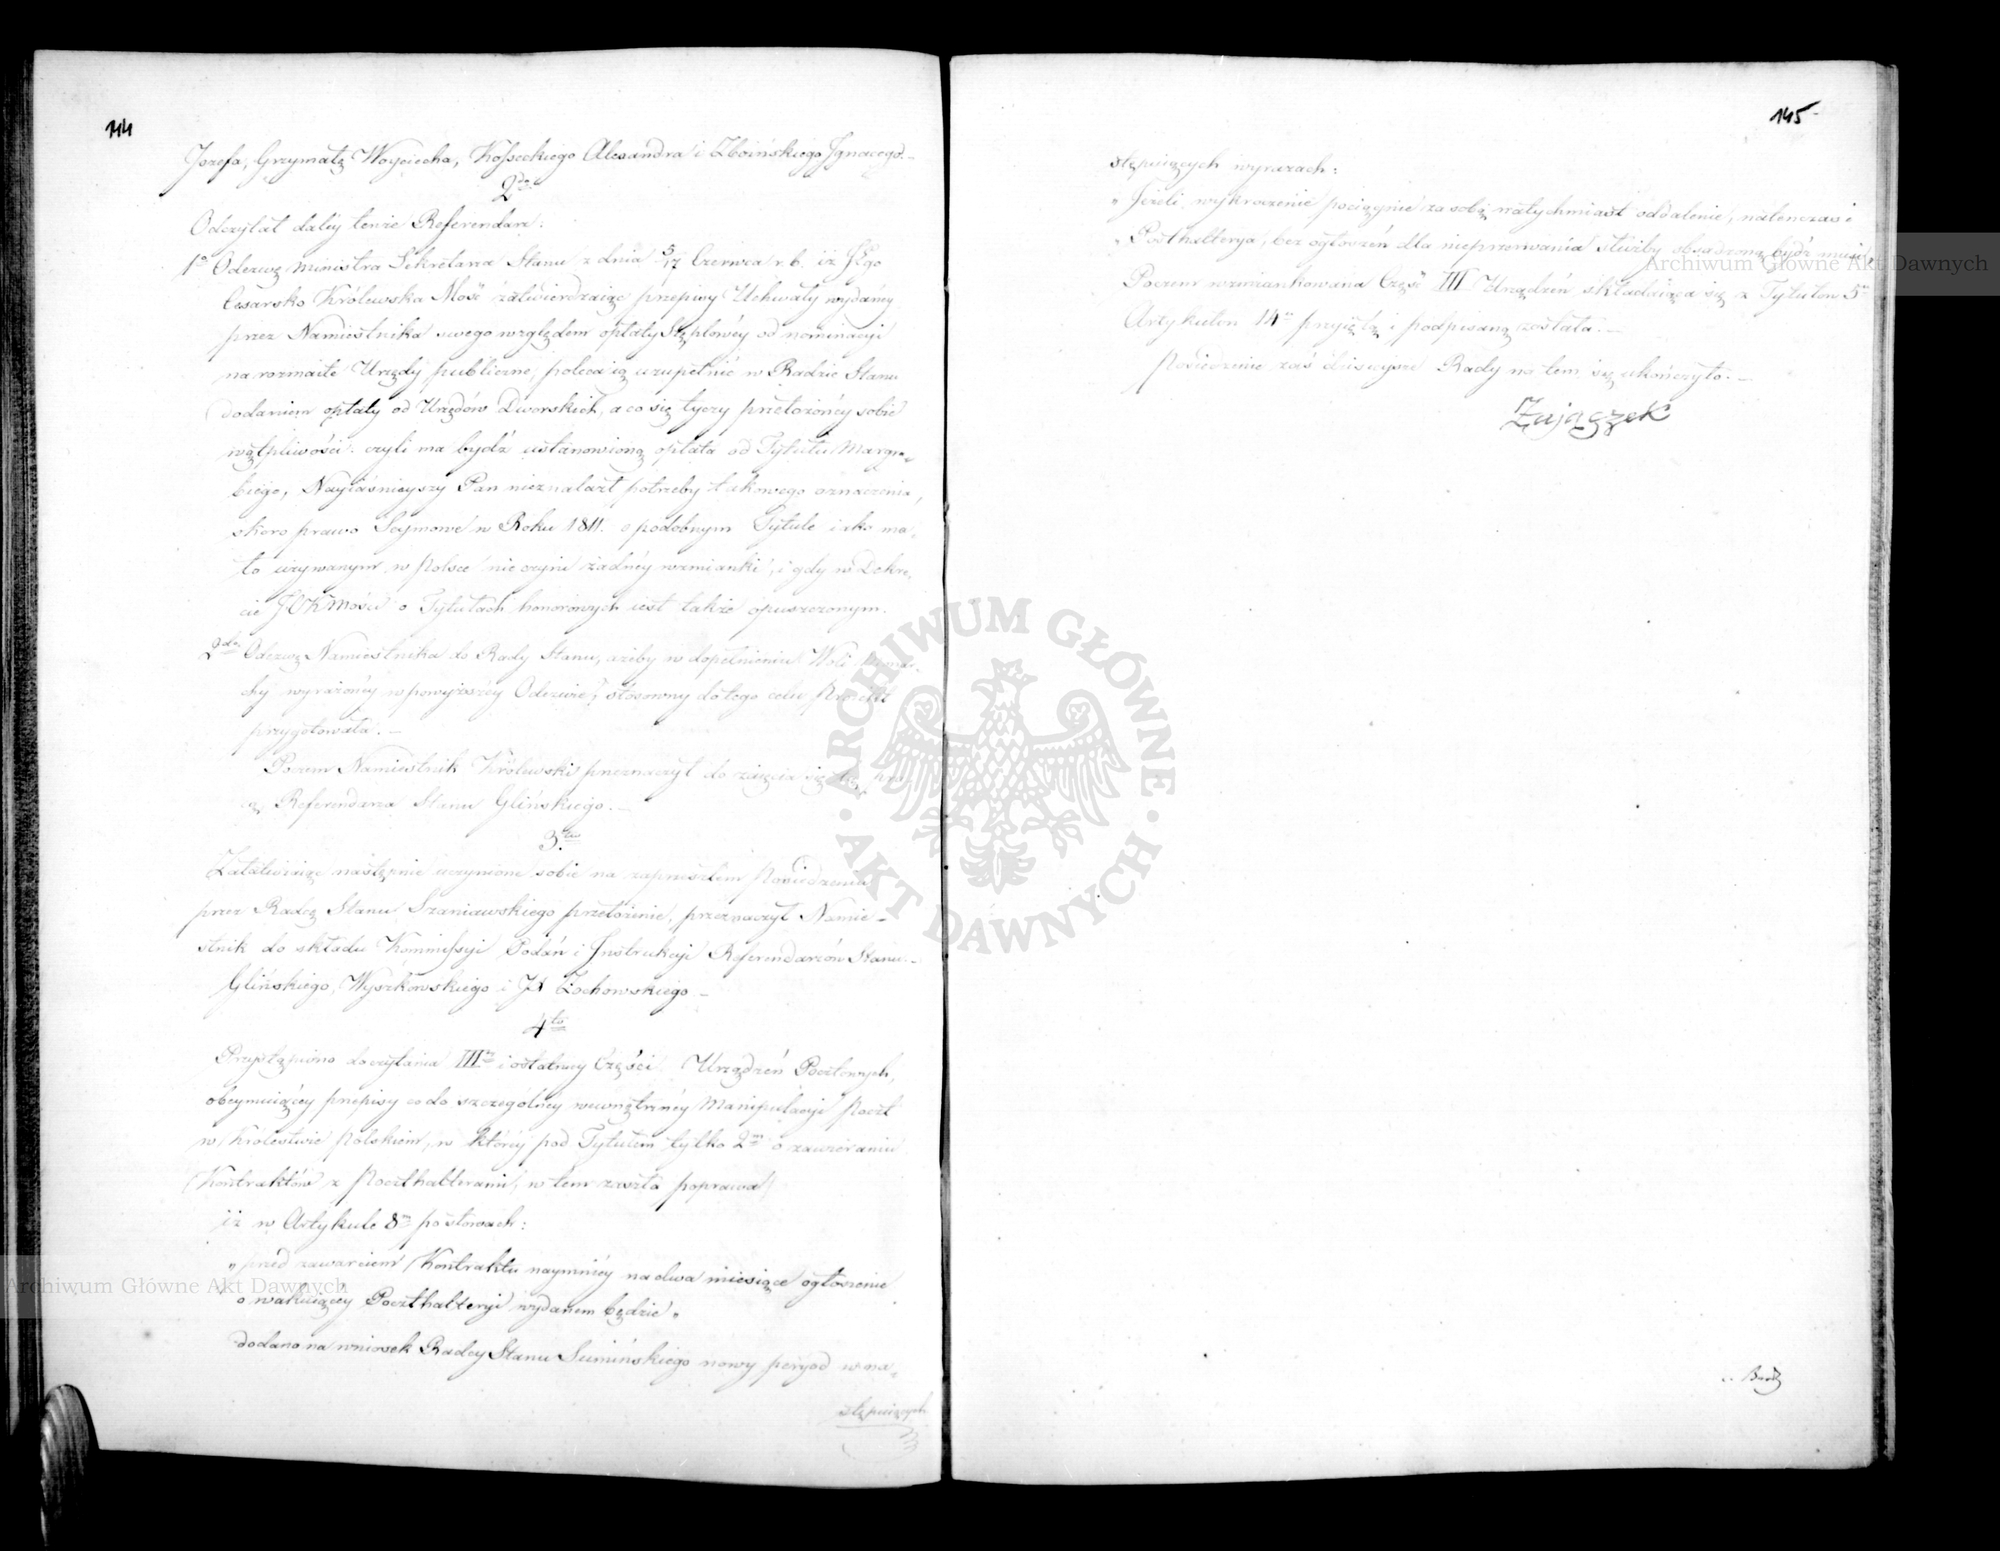 144
Jozefa, Grzymałę Woyciecha, Kosseckiego Alexandra i Zboińskiego Ignacego.–
2do
Odczytał daléy tenże Referendarz:
1o Odezwę Ministra Sekretarza Stanu z dnia 5/17 Czerwca r. b. iż JEgo
Cesarsko Królewska Mość zatwierdzaiąc przepisy Uchwały wydanéy
przez Namiestnika swego względem opłaty Stęplowéy od nominacyi
na rozmaite Urzędy publiczne, poleca ią uzupełnić w Radzie Stanu
dodaniem opłaty od Urzędów Dworskich, a co się tyczy przełożonéy sobie
wątpliwości: czyli ma bydź ustanowioną opłata od Tytułu Margra„
biego, Nayiaśnieyszy Pan nieznalazł potrzeby takowego oznaczenia,
skoro prawo Seymowe w Roku 1811. o podobnym Tytule iako ma„
ło używanym w Polsce nie czyni żadnéy wzmianki, i gdy w Dekre„
cie JCKMości o Tytułach honorowych iest także opuszczonym.
2do Odezwę Namiestnika do Rady Stanu, ażeby w dopełnieniu Woli Monar„
chy wyrażonéy w powyższéy Odezwie, stosowny do tego celu Proiekt
przygotowała.–
Poczem Namiestnik Królewski przeznaczył do zaięcia się tą pra„
cą Referendarza Stanu Glińskiego.–
3tio
Załatwiaiąc następnie uczynione sobie na zaprzeszłem Posiedzeniu
przez Radcę Stanu Szaniawskiego przełożenie, przeznaczył Namie–
stnik do składu Kommissyi Podań i Instrukcyi Referendarzów Stanu.–
Glińskiego, Wyszkowskiego i JX Żochowskiego–
4to
Przystąpiono do czytania IIIéy i ostatniey Części Urządzeń Pocztowych,
obeymuiącéy przepisy co do szczególnéy wewnętrznéy Manipulacyi Poczt
w Królestwie Polskiem, w któréy pod Tytułem tylko 2m o zawieraniu
Kontraktów z Poczthalterami, w tem zaszła poprawa,
iż w Artykule 8m po słowach:
„przed zawarciem Kontraktu naymniéy na dwa miesiące ogłoszenie
„o wakuiącéy Poczthalteryi wydanem będzie„
dodano na wniosek Radcy Stanu Sumińskiego nowy peryod w na„
stępuiących
145
stępuiących wyrazach:
„Jeżeli wykroczenie pociągnie za sobą natychmiast oddalenie, natenczas i
„Poczthalterya, bez ogłoszeń dla nieprzerwania służby obsadzoną bydź musi„
Poczem wzmiankowana Część III Urządzeń składaiąca się z Tytułow 5u
Artykułow 14u przyiętą i podpisaną została.–
Posiedzenie zaś dzisieysze Rady na tem się ukończyło.–
Zajączek
Archiwum Główne Akt Dawnych
Archiwum Główne Akt Dawnych
ARCHIWUM GŁÓWNE AKT DAWNYCH